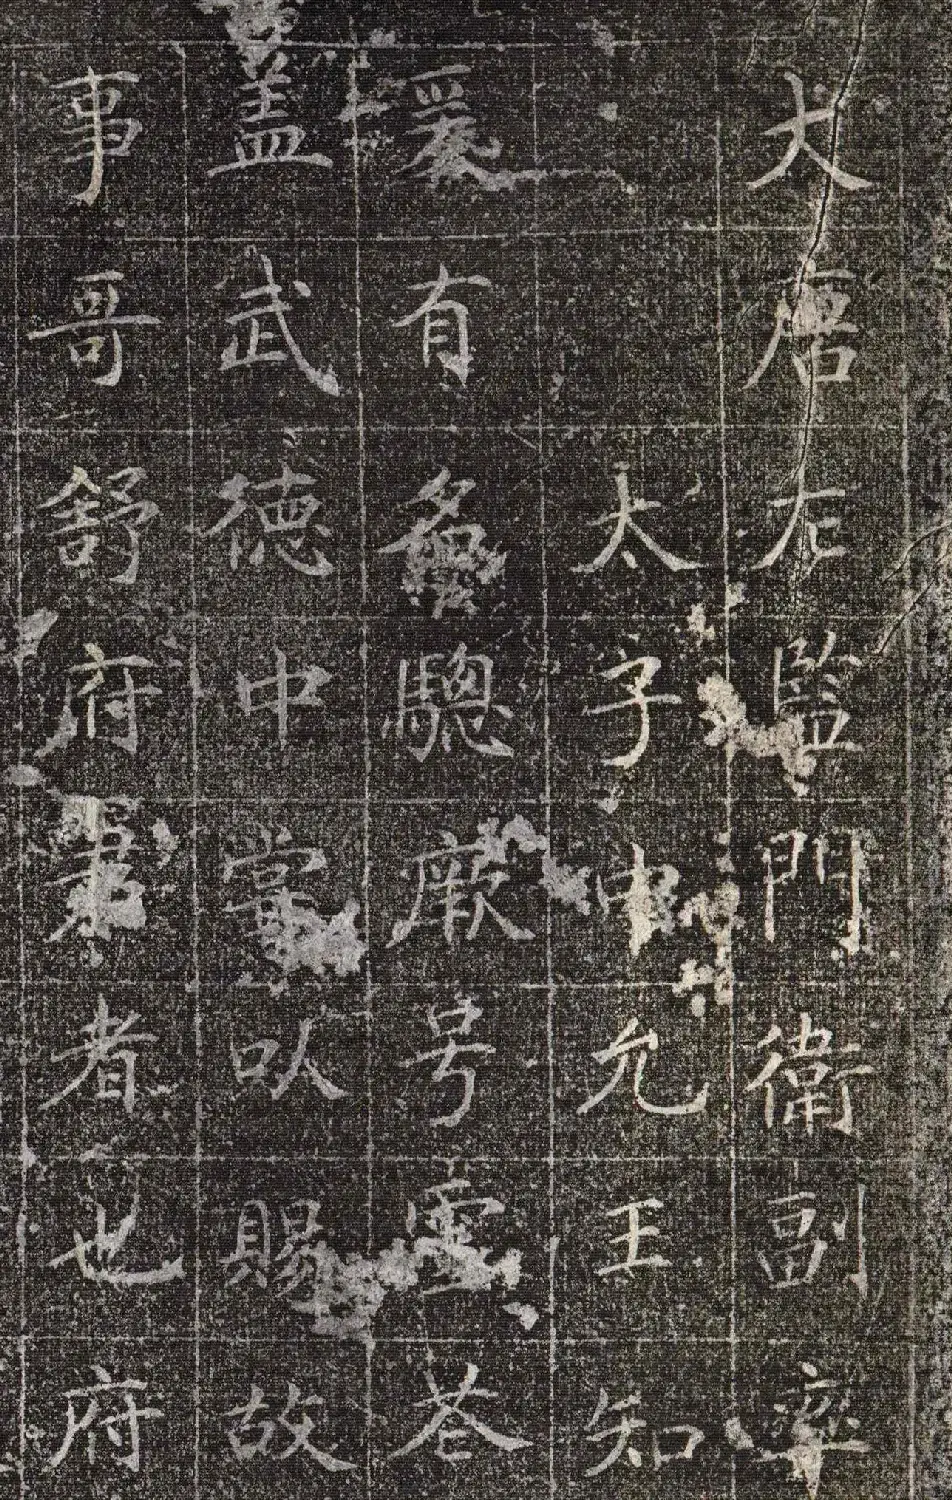 大唐左監門衛副率
太子中允王知
爰有名驄厥号雲花
盖武德中嘗以賜故
事哥舒府君者也府